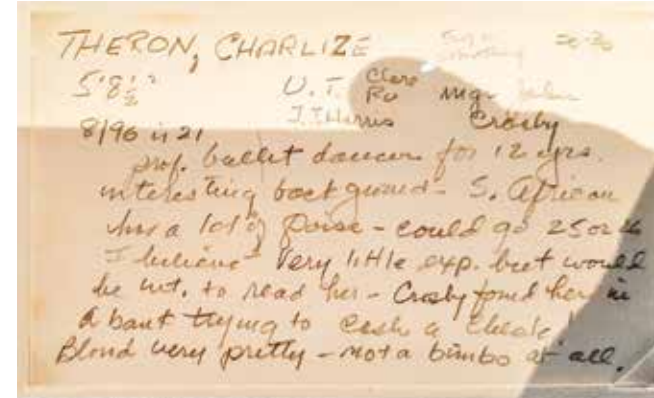 THERON, CHARLIZE 20-30
5'8½" U.T. Mgr. John
J. Harris Crosby
8/96 is 21
prof. ballet dancer for 12 yrs.
interesting background - S. African
has a lot of poise - could go 25 or 26
I believe - Very little exp. but would
be int. to read her - Crosby found her in
a bank trying to cash a check!
Blond very pretty - not a bimbo at all.